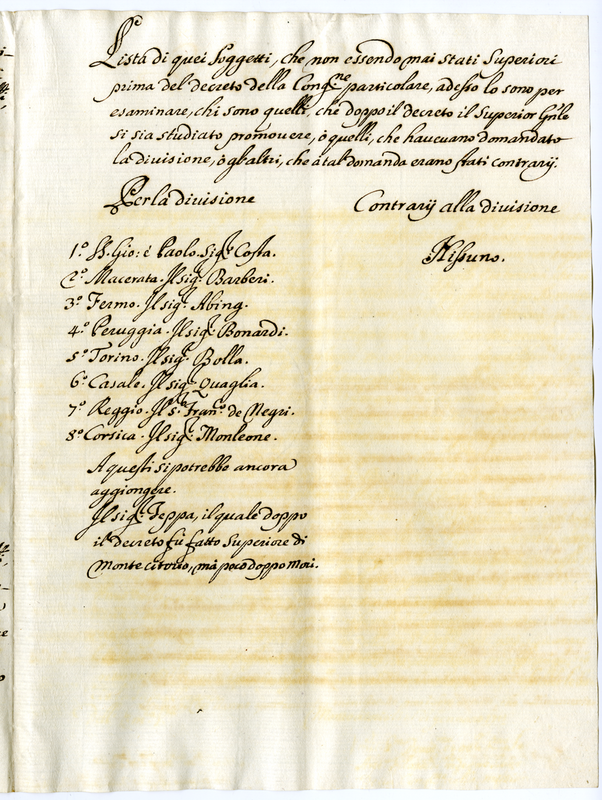 Lista di quei Soggetti, che non essendo mai stati Superiori
prima del decreto della Cong.ne particolare, adesso lo sono per
esaminare, chi sono quelli, che doppo il decreto il Superior Gñle
si sia studiato promovere, ò quelli, che haueuano domandato
la divisione, ò gl'altri, che à tal domanda erano stati contrarij.
Per la divisione
Contrarij alla divisione
1.º SS. Gio: è Paolo. Sig.r Costa.
Nissuno.
2.º Macerata. Il sig.r Barberi.
3.º Fermo. Il sig.r Abing.
4.º Peruggia. Il sig.r Bonardi.
5.º Torino. Il sig.r Bolla.
6.º Casale. Il sig.r Quaglia.
7.º Reggio. Il s. Fran.co de Negri.
8.º Corsica. Il sig.r Monleone.
A questi si potrebbe ancora
aggiongere.
Il sig.r Teppa, il quale doppo
il decreto fù fatto Superiore di
Monte citorio, mà poco doppo morì.